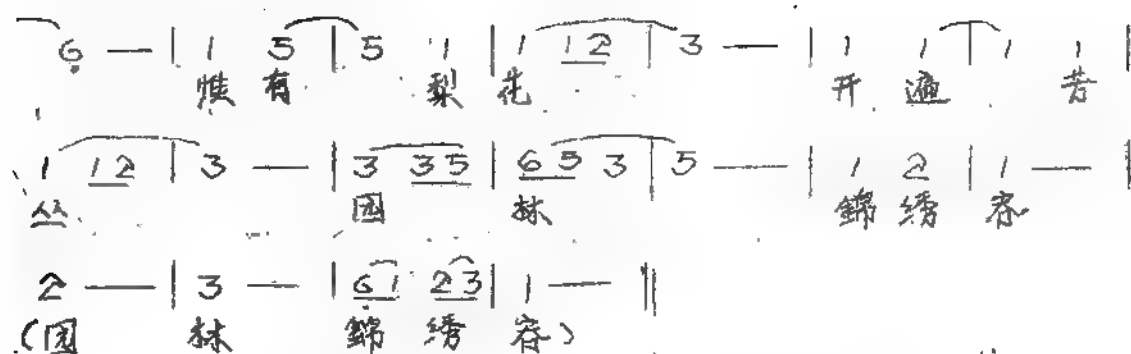 6 — | 1 5 | 5 1 | 1 12 | 3 — | 1 1 | 1 1 |
惟 有 梨 花 开 遍 苦
1 12 | 3 — | 3 35 | 65 3 | 5 — | 1 2 | 1 — |
丛 园 林 錦 绣 容
2 — | 3 — | 61 23 | 1 — ‖
(园 林 錦 绣 容)